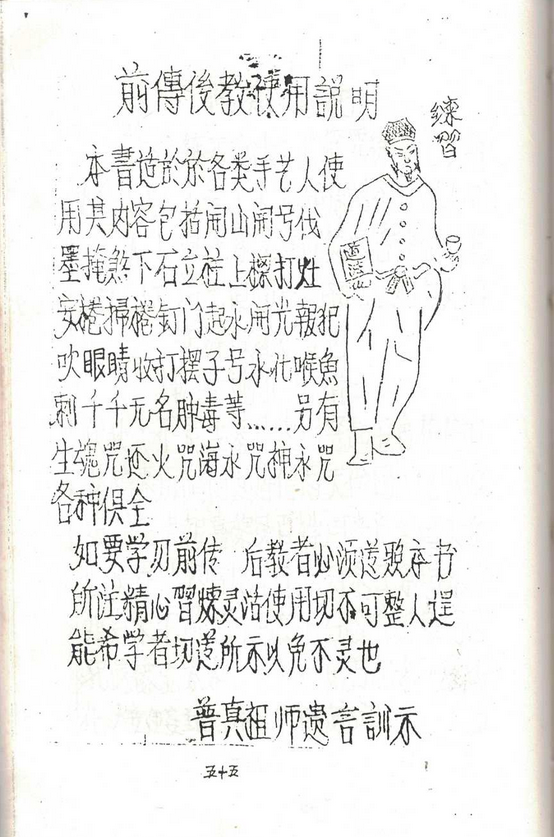 前傳後教使用説明
練習
本書适於於各类手艺人使
用其内容包括闹山闹号伐
墨掩煞下石立柱上樑打灶
安楼掃楼钉门起水開光報犯
吹眼睛收打摆子号水化喉魚
刺千千无名肿毒等……另有
生魂咒还火咒海水咒神水咒
各种俱全
如要学习前传 后教者必须遵照本书
所注精心習煉灵活使用切不可整人逞
能希学者切遵所示以免不灵也
普真祖师遗言訓示
五十五